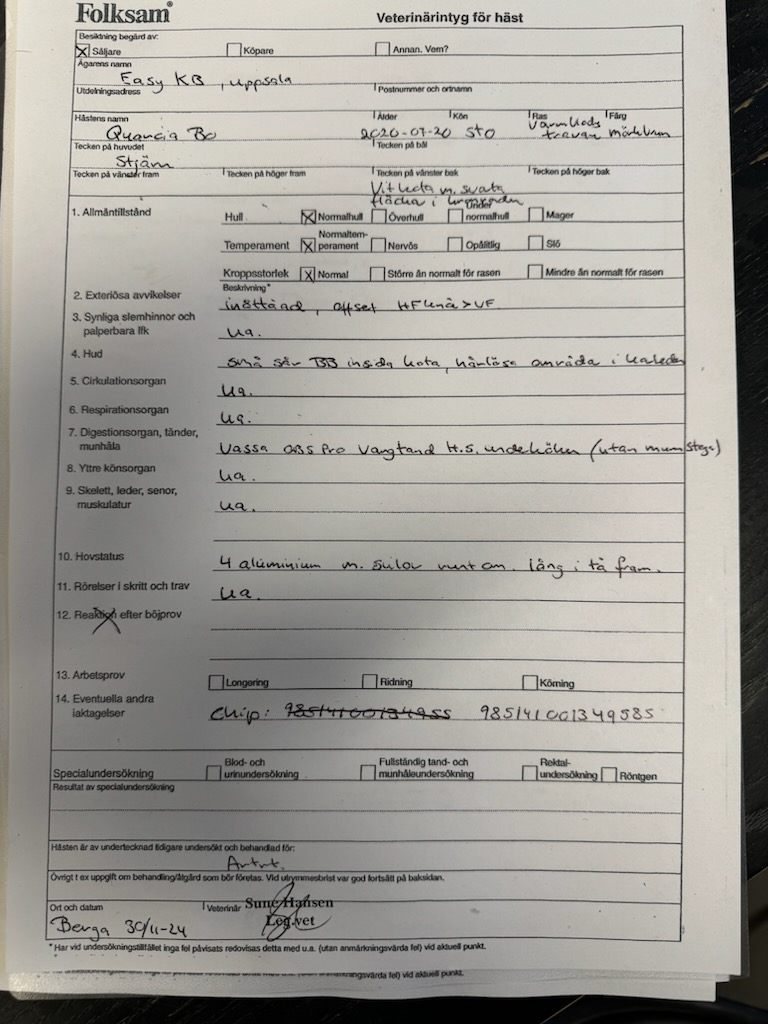 Folksam®
Veterinärintyg för häst
Besiktning begärd av:
Säljare Köpare Annan. Vem?
Ägarens namn
Easy KB, Uppsala
Utdelningsadress Postnummer och ortnamn
Hästens namn Ålder Kön Ras Färg
2020-07-20 Sto Varmblods travare mörkbrun
Tecken på huvudet Tecken på bål
Stjärn
Tecken på vänster fram Tecken på höger fram Tecken på vänster bak Tecken på höger bak
Vit leda m. svarta
fläckar i kronranden
1. Allmäntillstånd Hull Normalhull Överhull Under normalhull Mager
Temperament Normaltem-perament Nervös Opålitlig Slö
Kroppsstorlek Normal Större än normalt för rasen Mindre än normalt för rasen
Beskrivning*
2. Exteriösa avvikelser inåttåad, offset HF knä > VF
3. Synliga slemhinnor och
palperbara lfk ua.
4. Hud små sår BB insida kota, hårlösa område i karleden
5. Cirkulationsorgan ua.
6. Respirationsorgan ua.
7. Digestionsorgan, tänder,
munhåla Vassa OBS Pro Vargtand H.S. underkäken (utan munstege)
8. Yttre könsorgan ua.
9. Skelett, leder, senor,
muskulatur ua.
10. Hovstatus 4 aluminium m. sulor runt om. lång i tå fram.
11. Rörelser i skritt och trav ua.
12. Reaktion efter böjprov
13. Arbetsprov Longering Ridning Körning
14. Eventuella andra
iaktagelser Chip: 985141001349585
Specialundersökning Blod- och urinundersökning Fullständig tand- och munhåleundersökning Rektal-undersökning Röntgen
Resultat av specialundersökning
Hästen är av undertecknad tidigare undersökt och behandlad för:
Övrigt t ex uppgift om behandling/åtgärd som bör företas. Vid utrymmesbrist var god fortsätt på baksidan.
Ort och datum Veterinär Sune Hansen
Leg.vet
Berga 30/11-24
* Har vid undersökningstillfället inga fel påvisats redovisas detta med u.a. (utan anmärkningsvärda fel) vid aktuell punkt.
anmärkningsvärda fel) vid aktuell punkt.